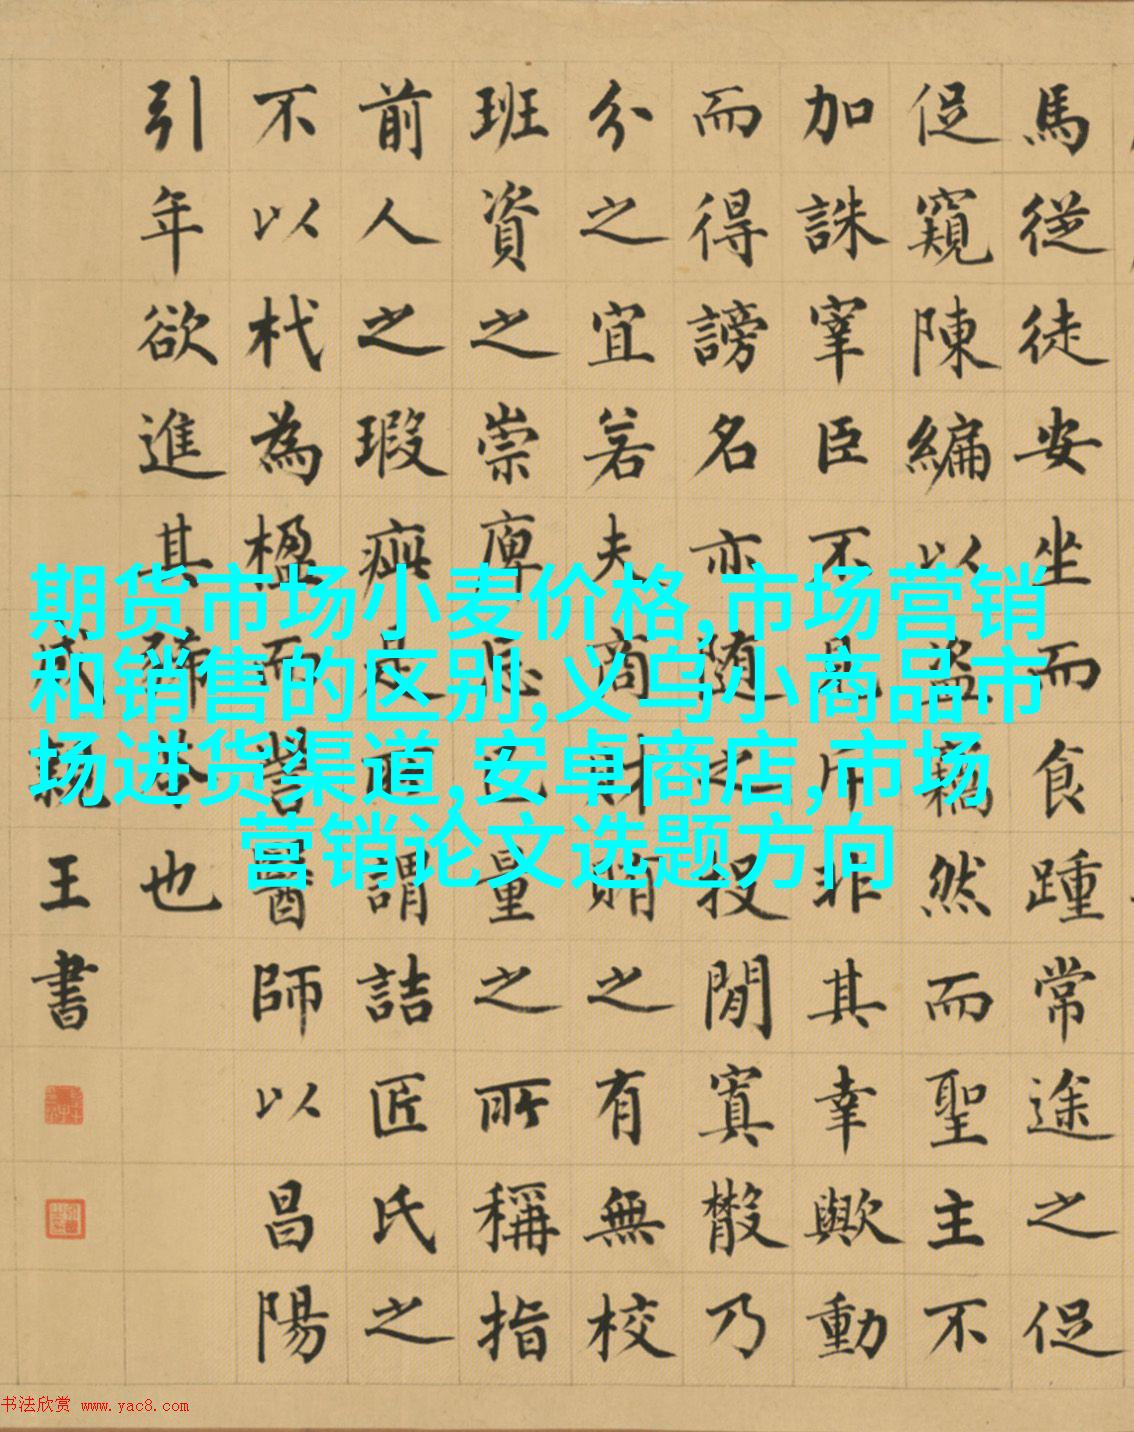 馬從徒安坐而食踵常途之促
促窺陳編以盜竊然而聖主不
加誅宰臣不見斥非其幸歟動
而得謗名亦随之投閒寘散乃
分之宜若夫商財賄之有無校
班資之崇庳忘己量之所稱指
前人之瑕疵是所謂詰匠氏之
不以杙為楹而訾醫師以昌陽
引年欲進其豨苓也
成親王書
期货市场小麦价格,市场营销
和销售的区别,义乌小商品市
场进货渠道,安卓商店,市场
营销论文选题方向
书法欣赏 www.yac8.com